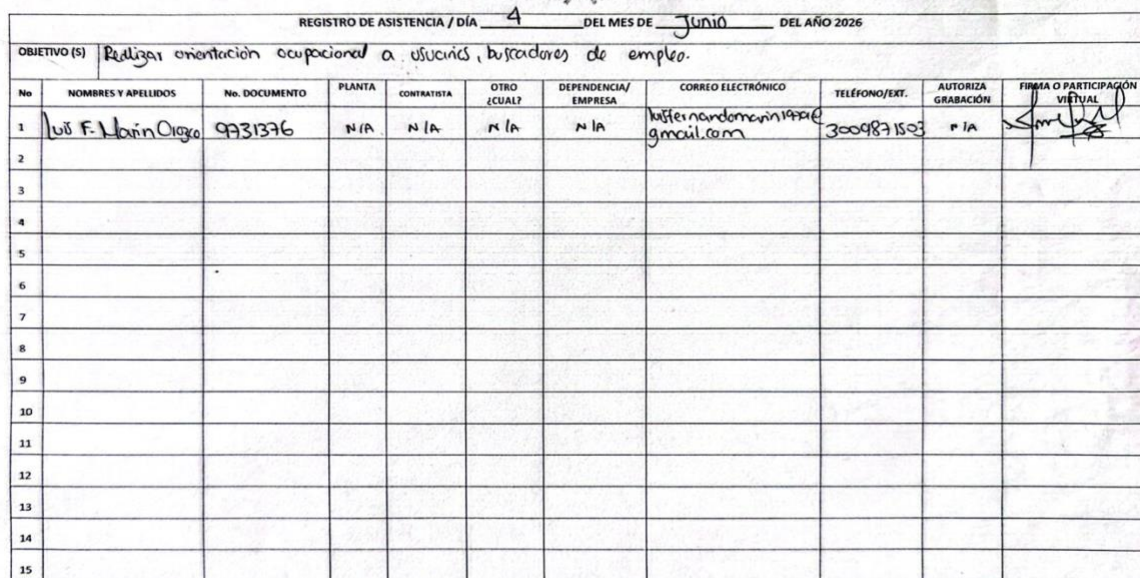 REGISTRO DE ASISTENCIA / DÍA 4 DEL MES DE Junio DEL AÑO 2026
OBJETIVO (S) Realizar orientación ocupacional a usuarios, buscadores de empleo.
No NOMBRES Y APELLIDOS No. DOCUMENTO PLANTA CONTRATISTA OTRO ¿CUAL? DEPENDENCIA/ EMPRESA CORREO ELECTRÓNICO TELÉFONO/EXT. AUTORIZA GRABACIÓN FIRMA O PARTICIPACIÓN VIRTUAL
1 Luis F. Marin Orozco 9731376 N/A N/A N/A N/A gmail.com 3009871503 N/A
2
3
4
5
6
7
8
9
10
11
12
13
14
15